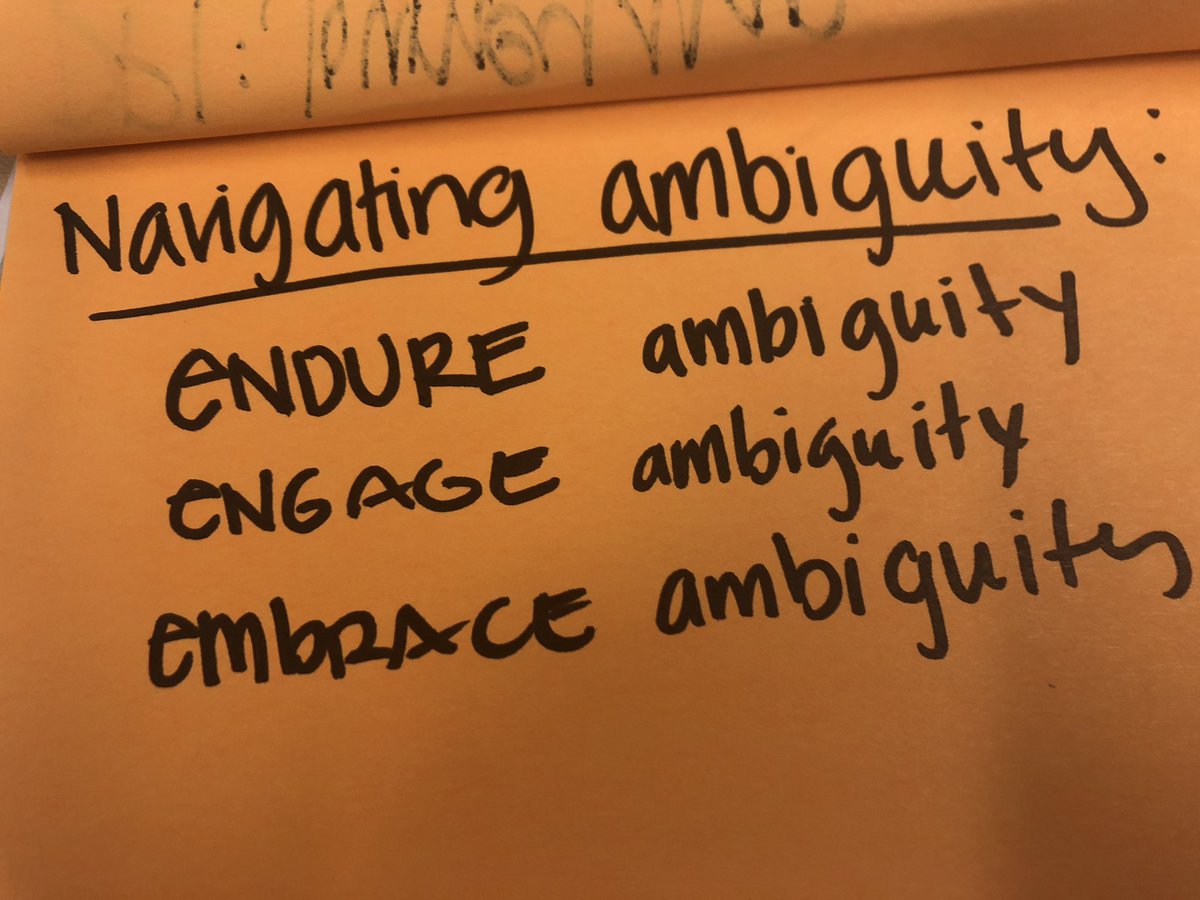 Navigating ambiguity:
ENDURE ambiguity
ENGAGE ambiguity
EMBRACE ambiguity